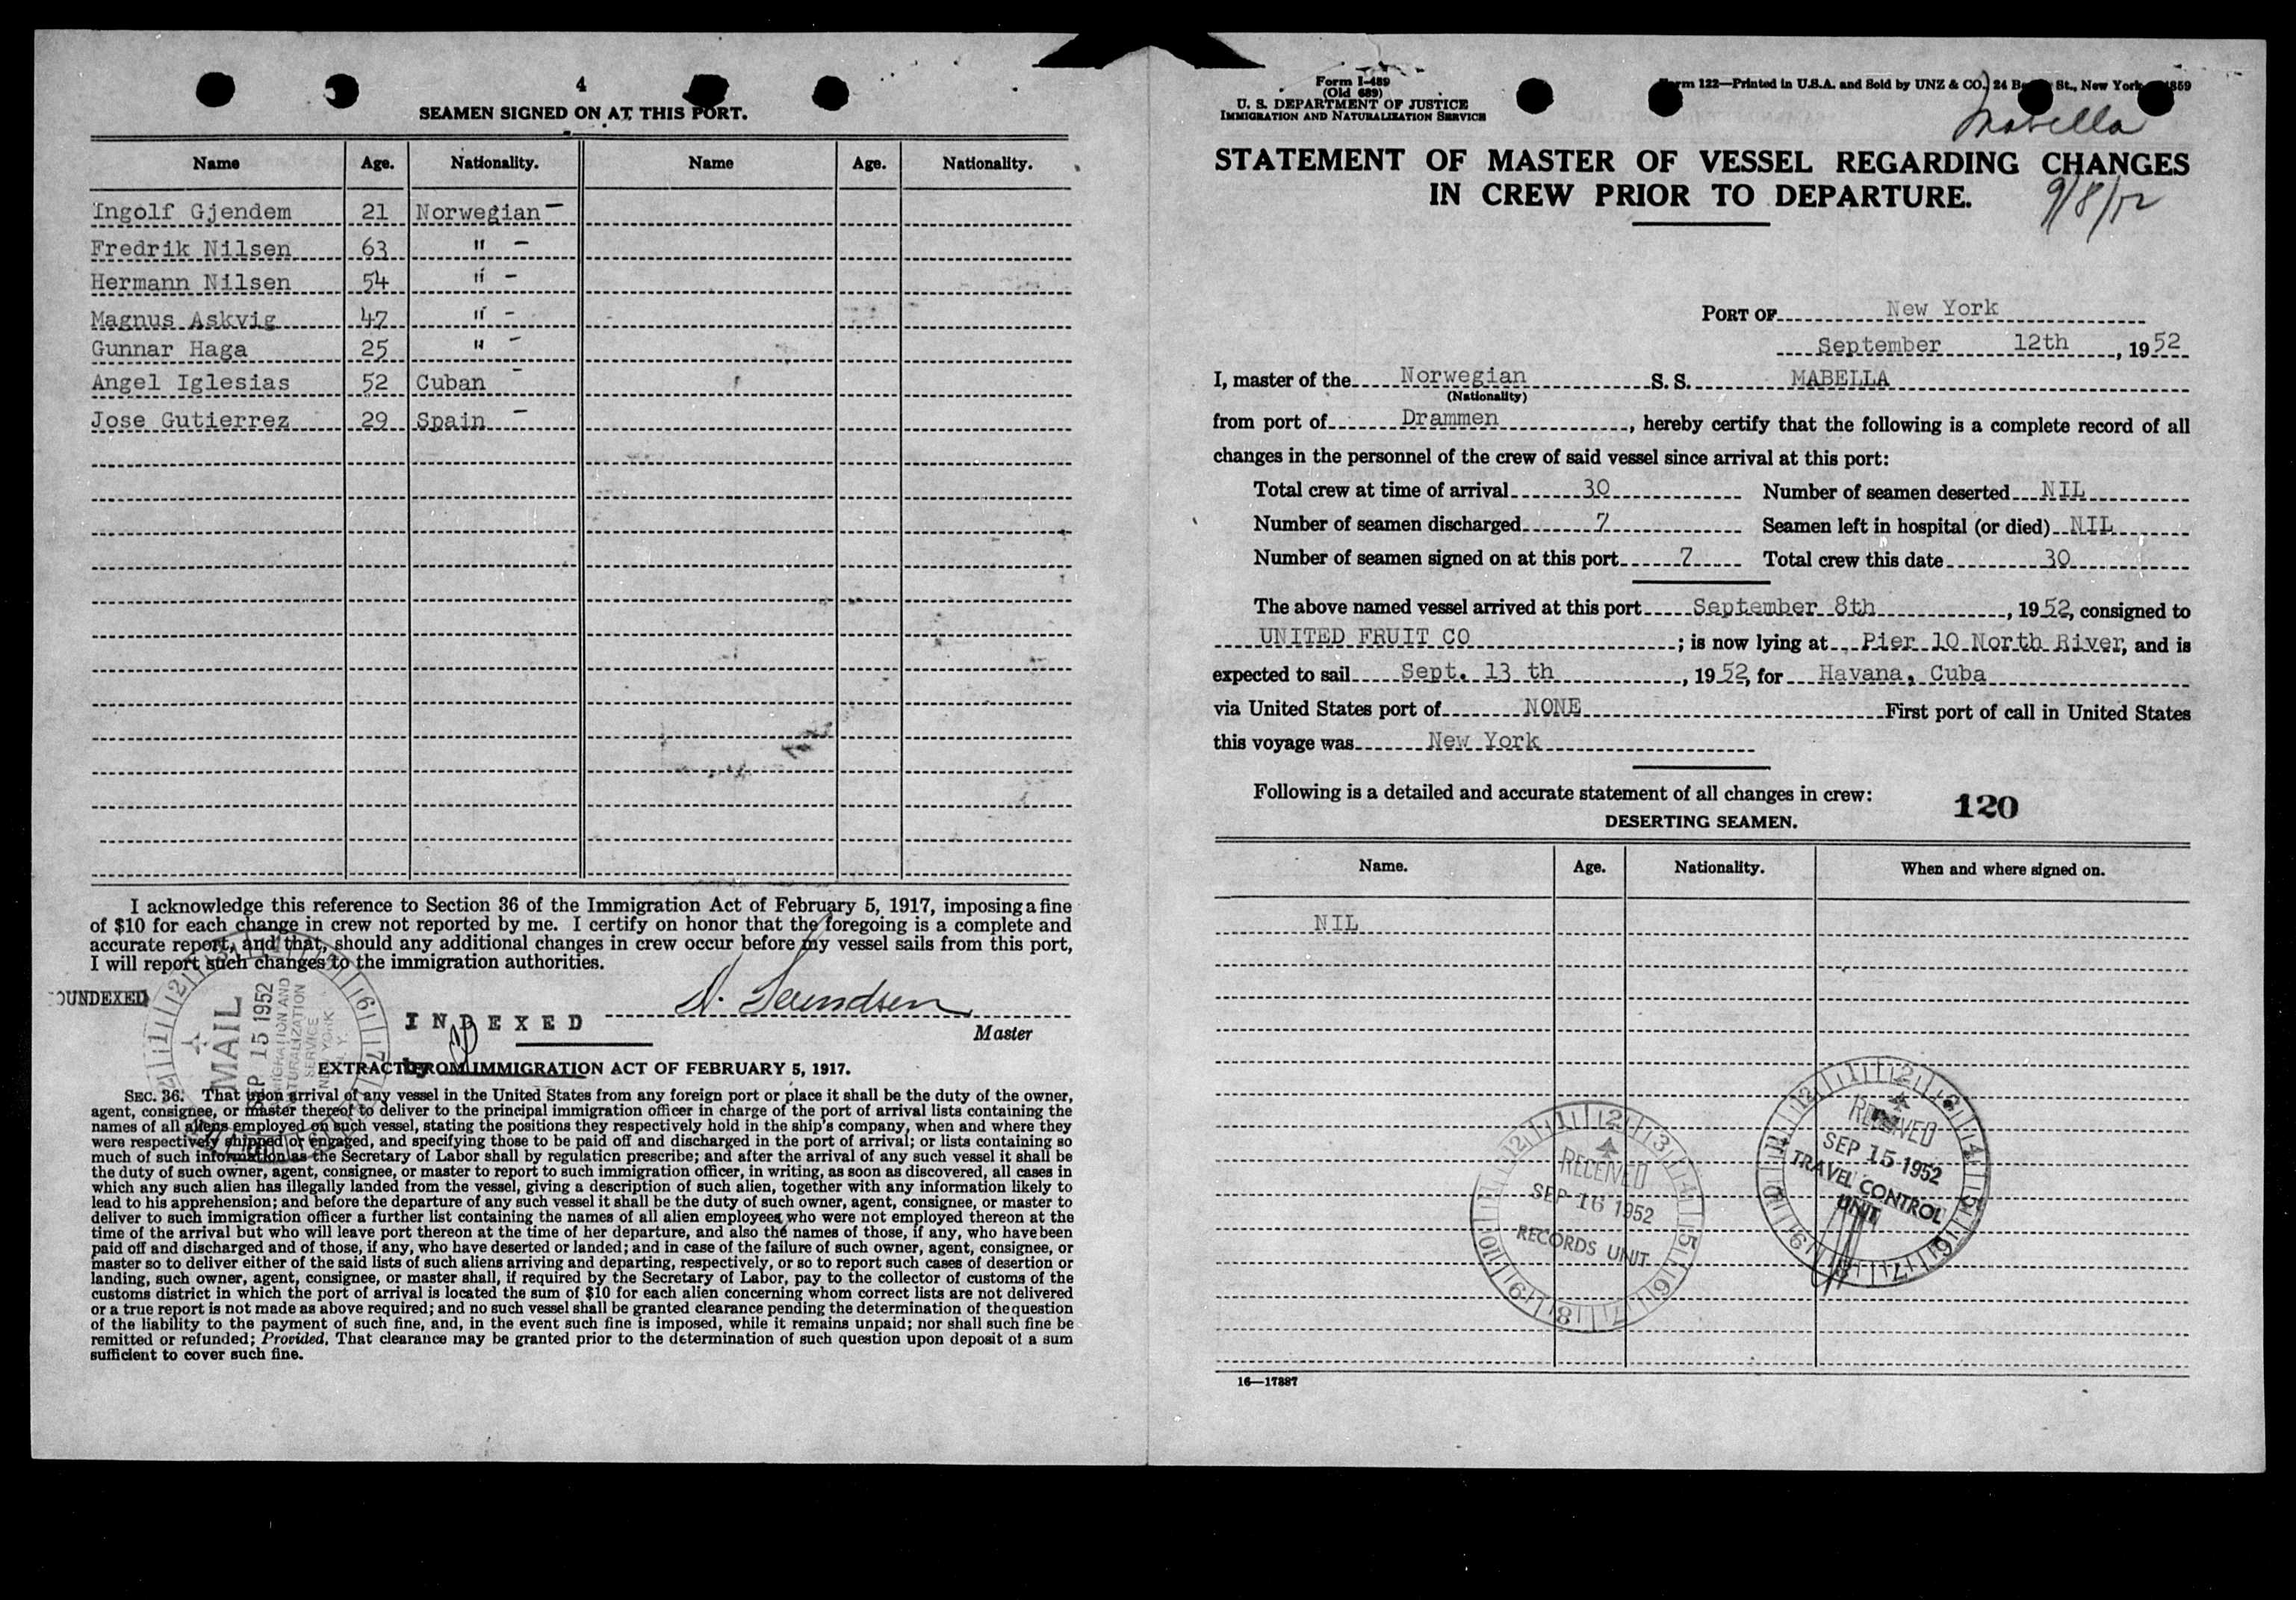 4
SEAMEN SIGNED ON AT THIS PORT.
Name Age. Nationality. Name Age. Nationality.
Ingolf Gjendem 21 Norwegian -
Fredrik Nilsen 63 " -
Hermann Nilsen 54 " -
Magnus Askvig 47 " -
Gunnar Haga 25 " -
Angel Iglesias 52 Cuban -
Jose Gutierrez 29 Spain -
I acknowledge this reference to Section 36 of the Immigration Act of February 5, 1917, imposing a fine
of $10 for each change in crew not reported by me. I certify on honor that the foregoing is a complete and
accurate report, and that, should any additional changes in crew occur before my vessel sails from this port,
I will report such changes to the immigration authorities.
MAIL
SEP 15 1952
IMMIGRATION AND
NATURALIZATION
SERVICE
NEW YORK
N. Y.
INDEXED
by
Master
EXTRACT FROM IMMIGRATION ACT OF FEBRUARY 5, 1917.
SEC. 36. That upon arrival of any vessel in the United States from any foreign port or place it shall be the duty of the owner,
agent, consignee, or master thereof to deliver to the principal immigration officer in charge of the port of arrival lists containing the
names of all aliens employed on such vessel, stating the positions they respectively hold in the ship's company, when and where they
were respectively shipped or engaged, and specifying those to be paid off and discharged in the port of arrival; or lists containing so
much of such information as the Secretary of Labor shall by regulation prescribe; and after the arrival of any such vessel it shall be
the duty of such owner, agent, consignee, or master to report to such immigration officer, in writing, as soon as discovered, all cases in
which any such alien has illegally landed from the vessel, giving a description of such alien, together with any information likely to
lead to his apprehension; and before the departure of any such vessel it shall be the duty of such owner, agent, consignee, or master to
deliver to such immigration officer a further list containing the names of all alien employees who were not employed thereon at the
time of the arrival but who will leave port thereon at the time of her departure, and also the names of those, if any, who have been
paid off and discharged and of those, if any, who have deserted or landed; and in case of the failure of such owner, agent, consignee, or
master so to deliver either of the said lists of such aliens arriving and departing, respectively, or so to report such cases of desertion or
landing, such owner, agent, consignee, or master shall, if required by the Secretary of Labor, pay to the collector of customs of the
customs district in which the port of arrival is located the sum of $10 for each alien concerning whom correct lists are not delivered
or a true report is not made as above required; and no such vessel shall be granted clearance pending the determination of the question
of the liability to the payment of such fine, and, in the event such fine is imposed, while it remains unpaid; nor shall such fine be
remitted or refunded; Provided, That clearance may be granted prior to the determination of such question upon deposit of a sum
sufficient to cover such fine.
Form I-489
(Old 689)
U. S. DEPARTMENT OF JUSTICE
IMMIGRATION AND NATURALIZATION SERVICE
Form 122—Printed in U.S.A. and Sold by UNZ & CO., 24 St., New York
Mabella
STATEMENT OF MASTER OF VESSEL REGARDING CHANGES
IN CREW PRIOR TO DEPARTURE.
9/8/52
PORT OF New York
September 12th, 1952
I, master of the Norwegian S. S. MABELLA
(Nationality)
from port of Drammen, hereby certify that the following is a complete record of all
changes in the personnel of the crew of said vessel since arrival at this port:
Total crew at time of arrival 30 Number of seamen deserted NIL
Number of seamen discharged 7 Seamen left in hospital (or died) NIL
Number of seamen signed on at this port 7 Total crew this date 30
The above named vessel arrived at this port September 8th, 1952, consigned to
UNITED FRUIT CO; is now lying at Pier 10 North River, and is
expected to sail Sept. 13 th, 1952, for Havana, Cuba
via United States port of NONE First port of call in United States
this voyage was New York
Following is a detailed and accurate statement of all changes in crew:
120
DESERTING SEAMEN.
Name. Age. Nationality. When and where signed on.
NIL
RECEIVED
SEP 16 1952
RECORDS UNIT
RECEIVED
SEP 15 1952
TRAVEL CONTROL
UNIT
16—17887